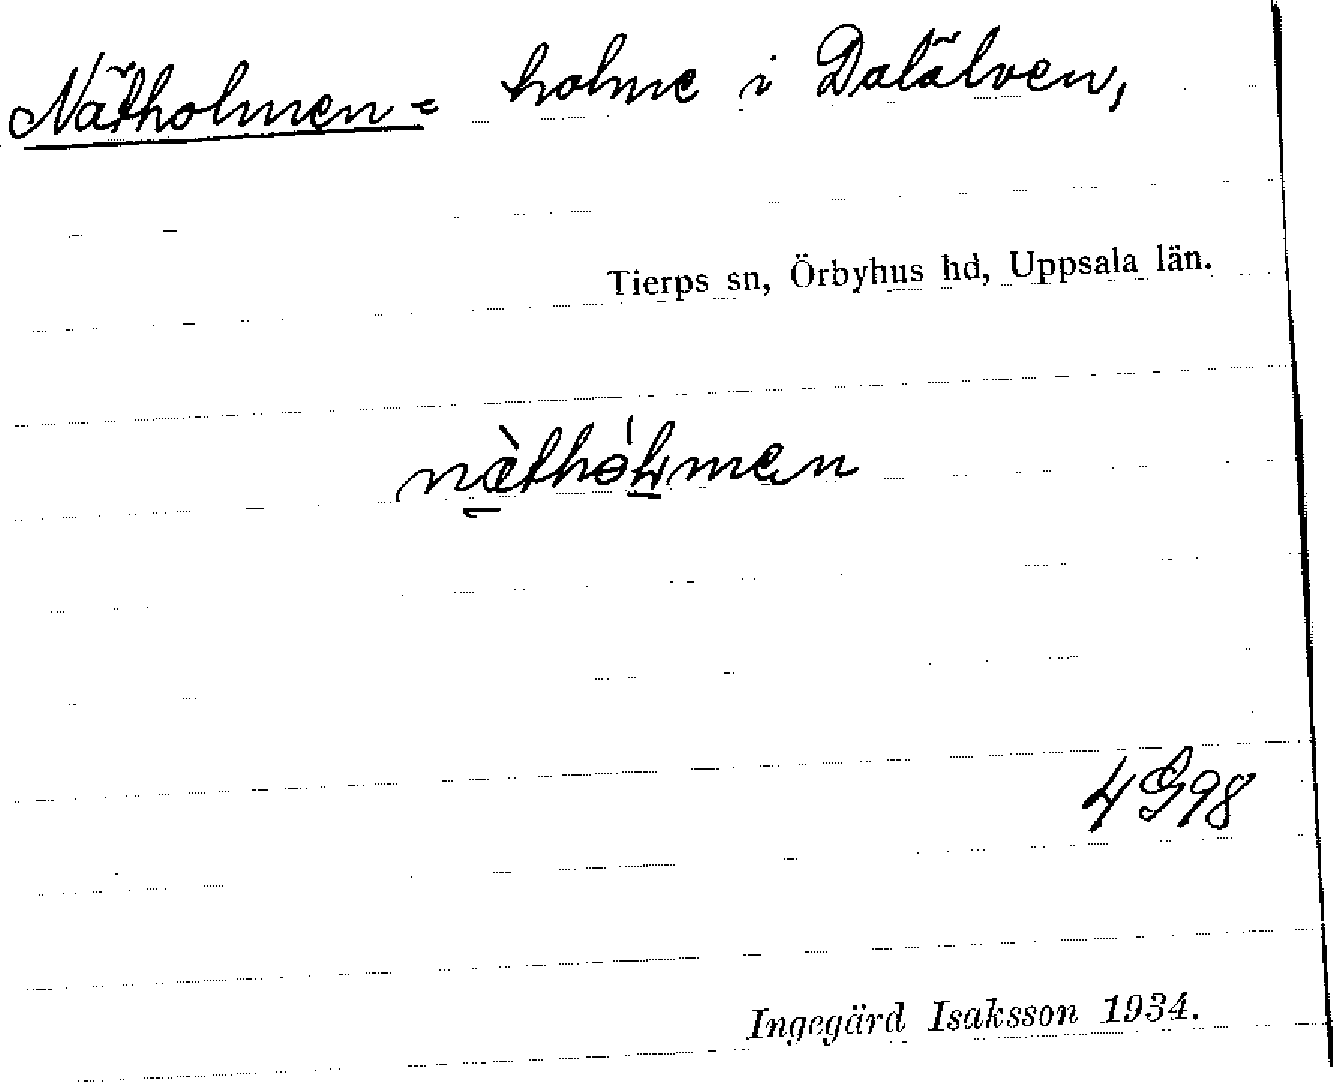 Nätholmen = holme i Dalälven,
Tierps sn, Örbyhus hd, Uppsala län.
næ̀thólmen
4G98
Ingegärd Isaksson 1934.